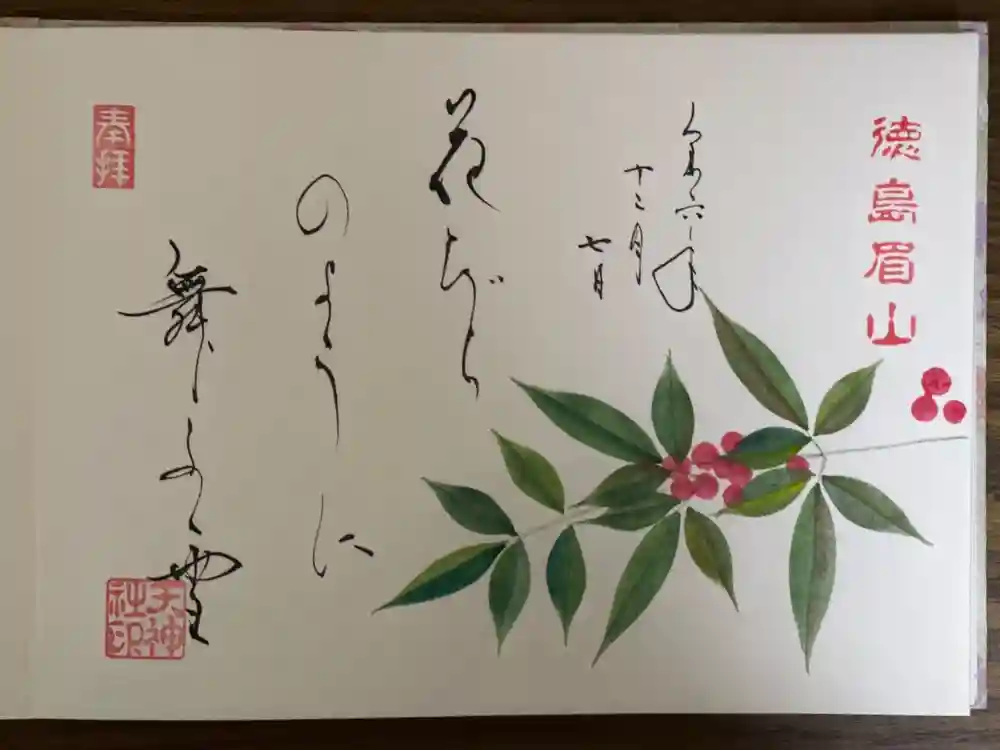 徳島眉山
令和六年
十二月
七日
花びら
のように
奉拝
舞 雪
天神
社印